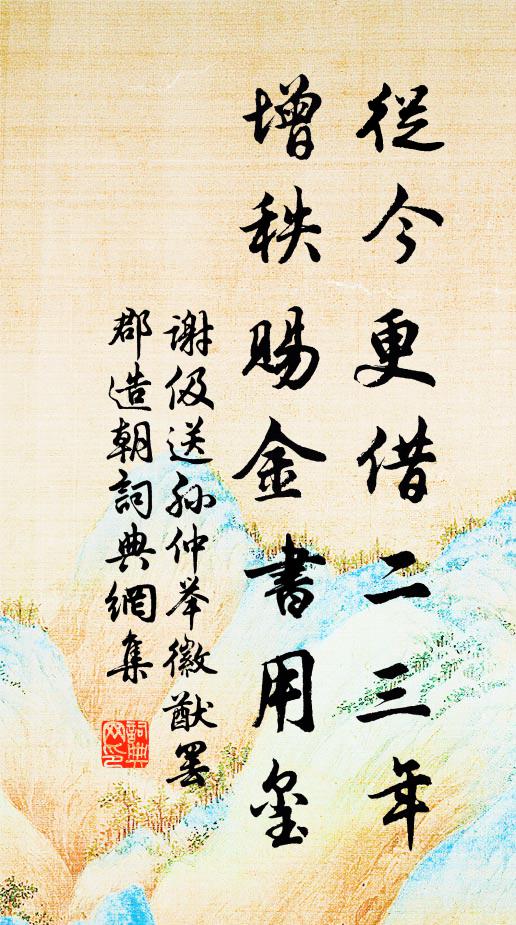 從今更借二三年
增秩賜金書用璽
謝伋送孫仲举徽猷罢
郡造朝詞典網集
詞典網印